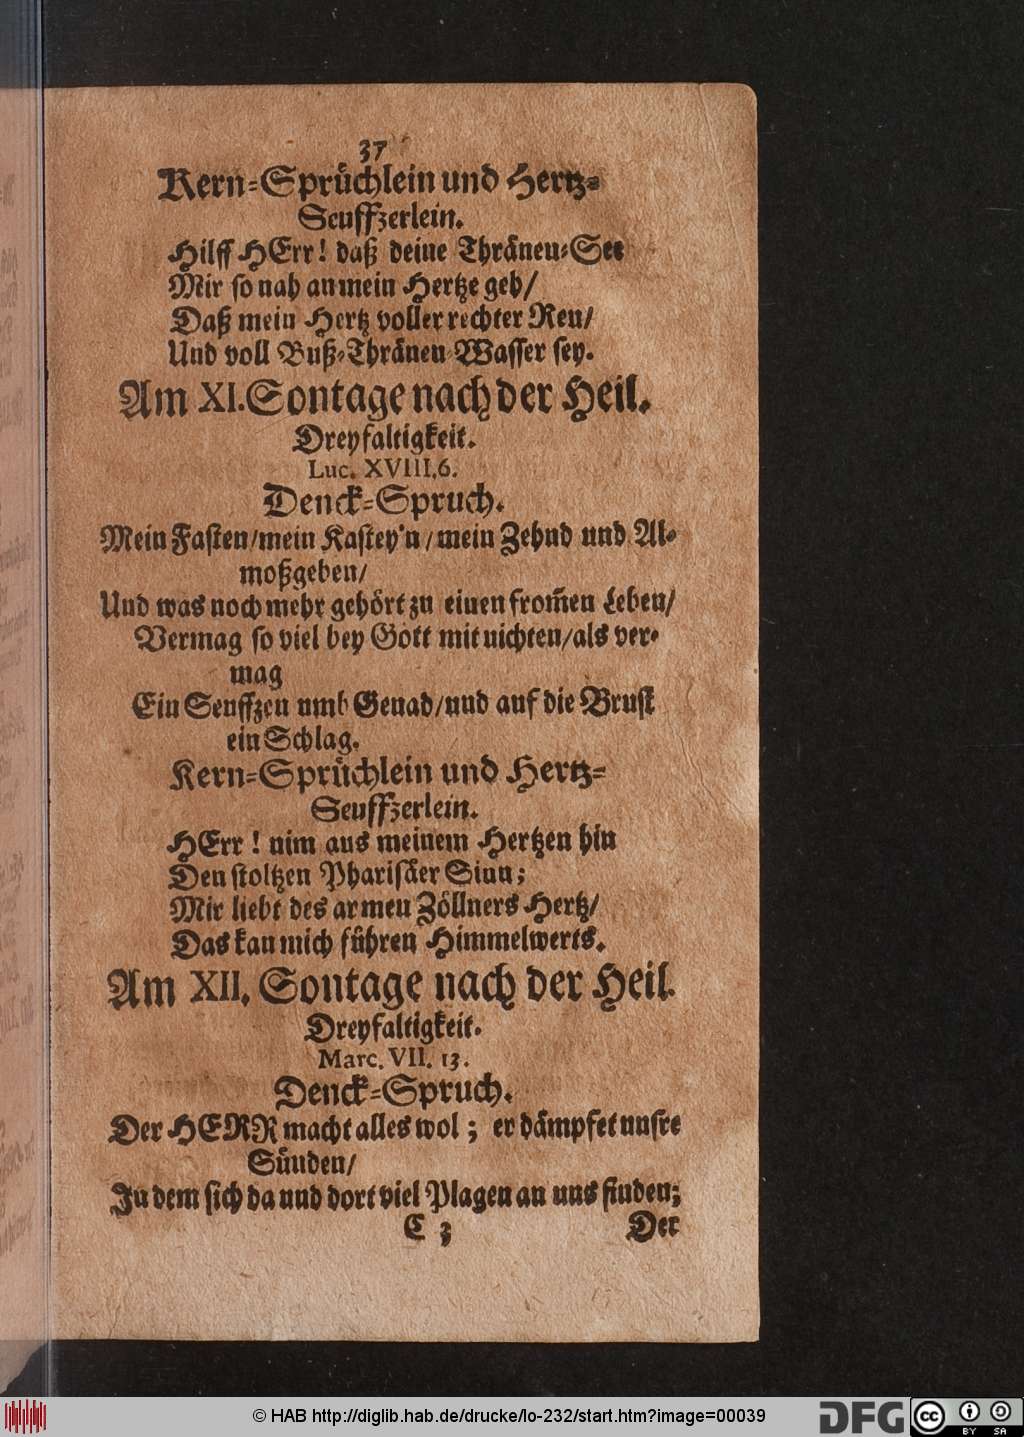 37
Kern-Sprüchlein und Hertz-
Seuffzerlein.
Hilff HErr! daß deine Thränen-See
Mir so nah an mein Hertze geh/
Daß mein Hertz voller rechter Reu/
Und voll Buß-Thränen-Wasser sey.
Am XI. Sontage nach der Heil.
Dreyfaltigkeit.
Luc. XVIII, 6.
Denck-Spruch.
Mein Fasten/mein Kastey'n/mein Zehnd und Al-
moßgeben/
Und was noch mehr gehört zu einen from̃en Leben/
Vermag so viel bey Gott mit nichten/als ver-
mag
Ein Seuffzen umb Genad/und auf die Brust
ein Schlag.
Kern-Sprüchlein und Hertz-
Seuffzerlein.
HErr! nim aus meinem Hertzen hin
Den stoltzen Pharisäer Sinn;
Mir liebt des armen Zöllners Hertz/
Das kan mich führen Himmelwerts.
Am XII. Sontage nach der Heil.
Dreyfaltigkeit.
Marc. VII. 13.
Denck-Spruch.
Der HERR macht alles wol; er dämpfet unsre
Sünden/
In dem sich da und dort viel Plagen an uns finden;
C 3 Der
© HAB http://diglib.hab.de/drucke/lo-232/start.htm?image=00039
DFG
cc BY SA